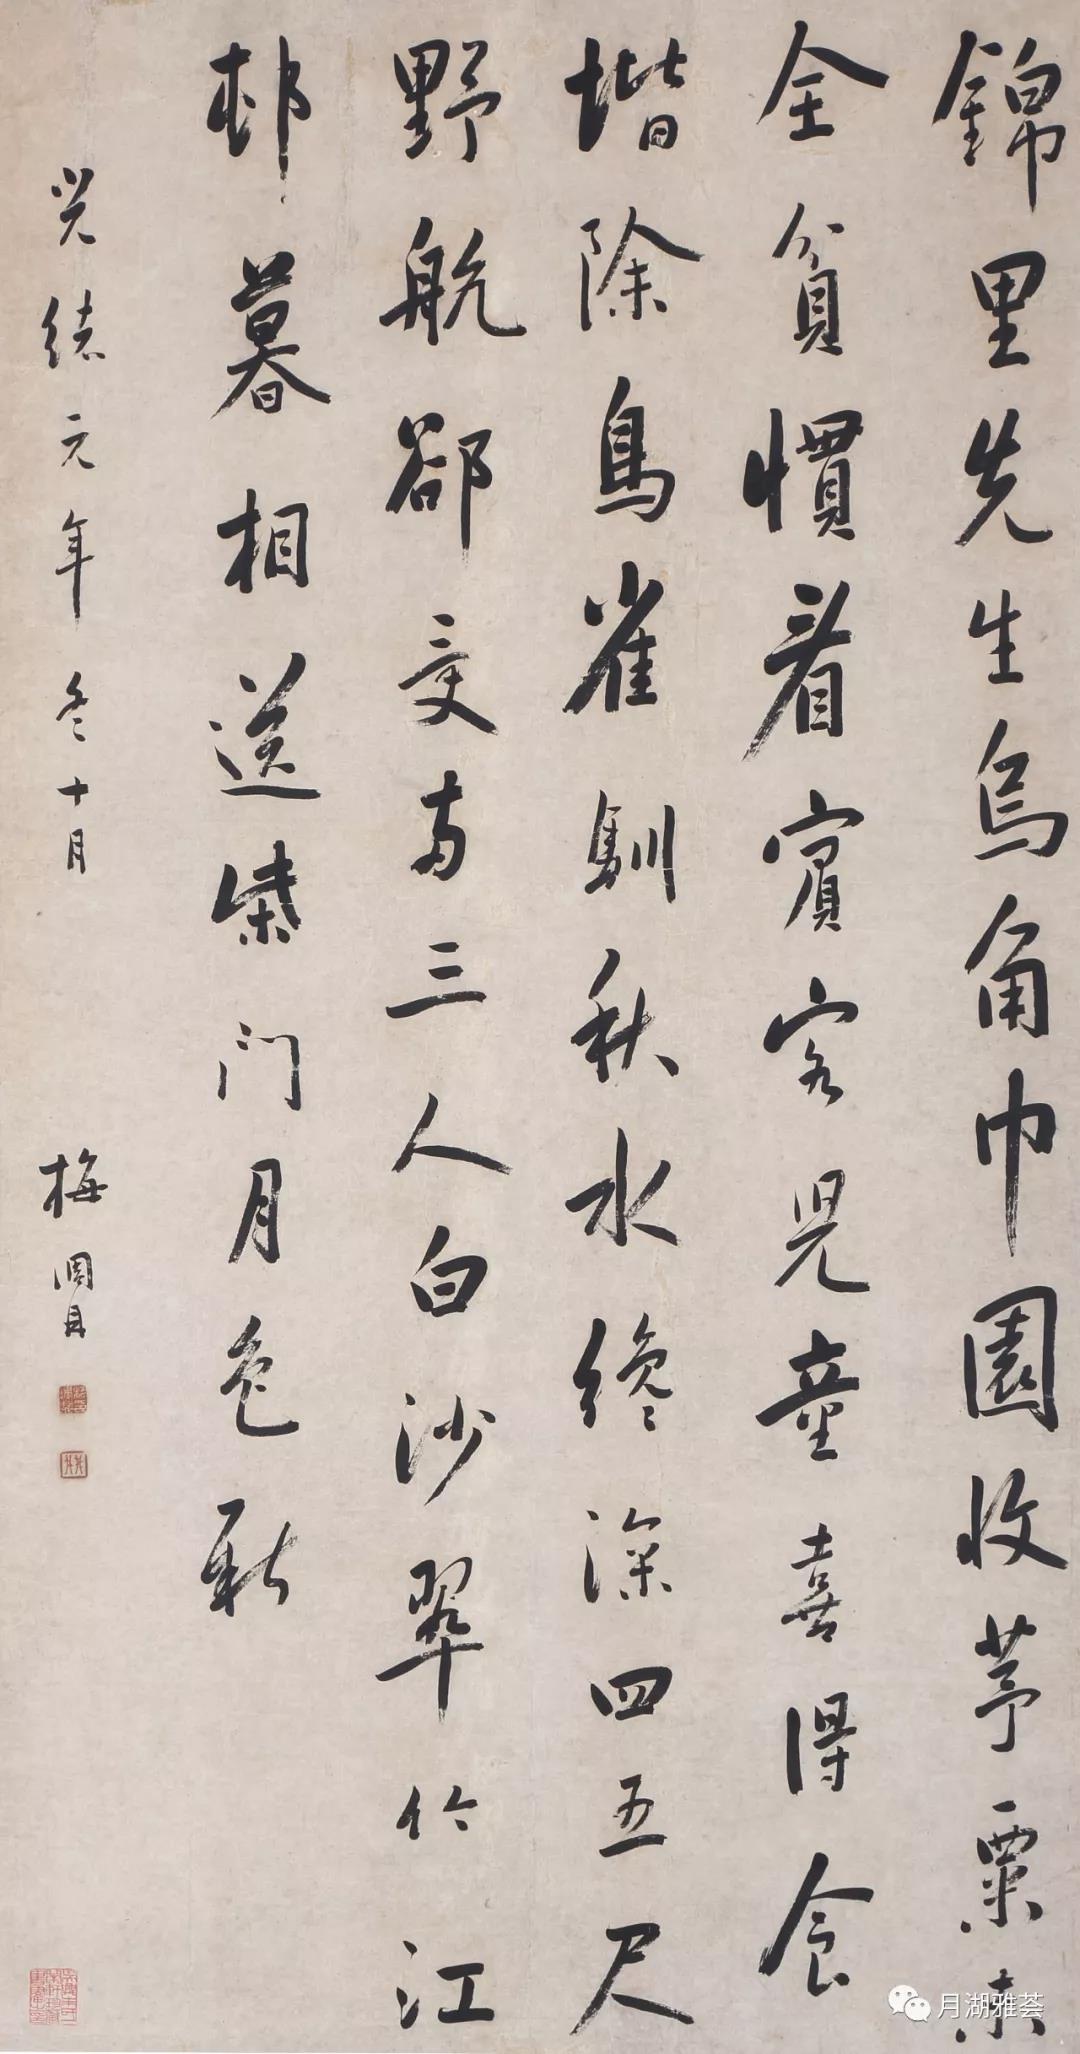 錦里先生烏角巾園收芧栗未
全貧慣看賓客兒童喜得食
堦除鳥雀馴秋水纔深四五尺
野航郤受兩三人白沙翠竹江
邨暮相送柴門月色新
光緒元年冬十月 梅調鼎
月湖雅荟